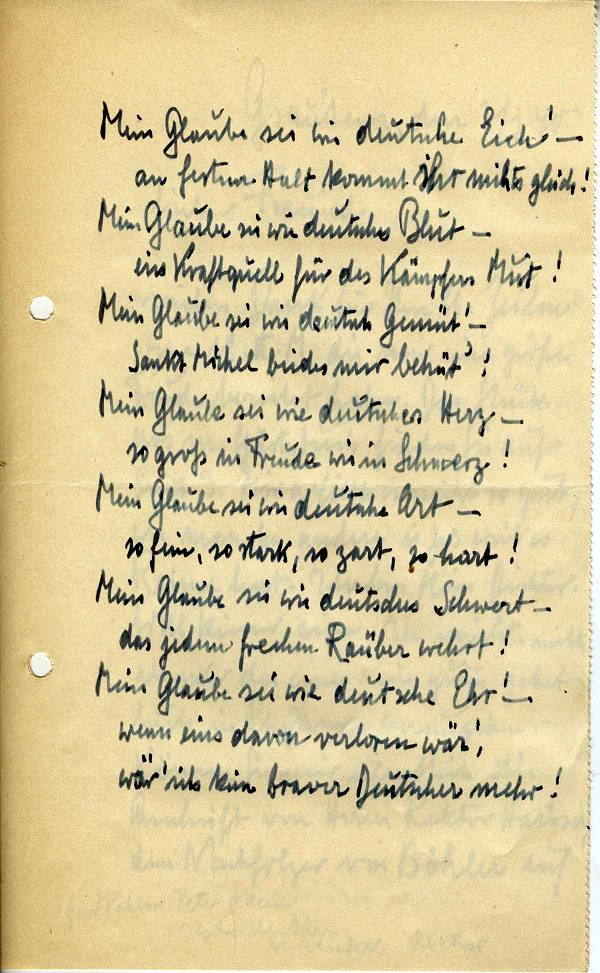 Mein Glaube sei wie deutsche Eich' –
an festem Halt kommt ihr nichts gleich!
Mein Glaube sei wie deutsches Blut –
ein Kraftquell für des Kämpfers Mut!
Mein Glaube sei wie deutsch Gemüt' –
Sankt Michel beides mir behüt'!
Mein Glaube sei wie deutsches Herz –
so groß in Freude wie in Schmerz!
Mein Glaube sei wie deutsche Art –
so fein, so stark, so zart, so hart!
Mein Glaube sei wie deutsches Schwert –
das jedem frechen Räuber wehrt!
Mein Glaube sei wie deutsche Ehr' –
wenn eins davon verloren wär',
wär' ich kein braver Deutscher mehr!